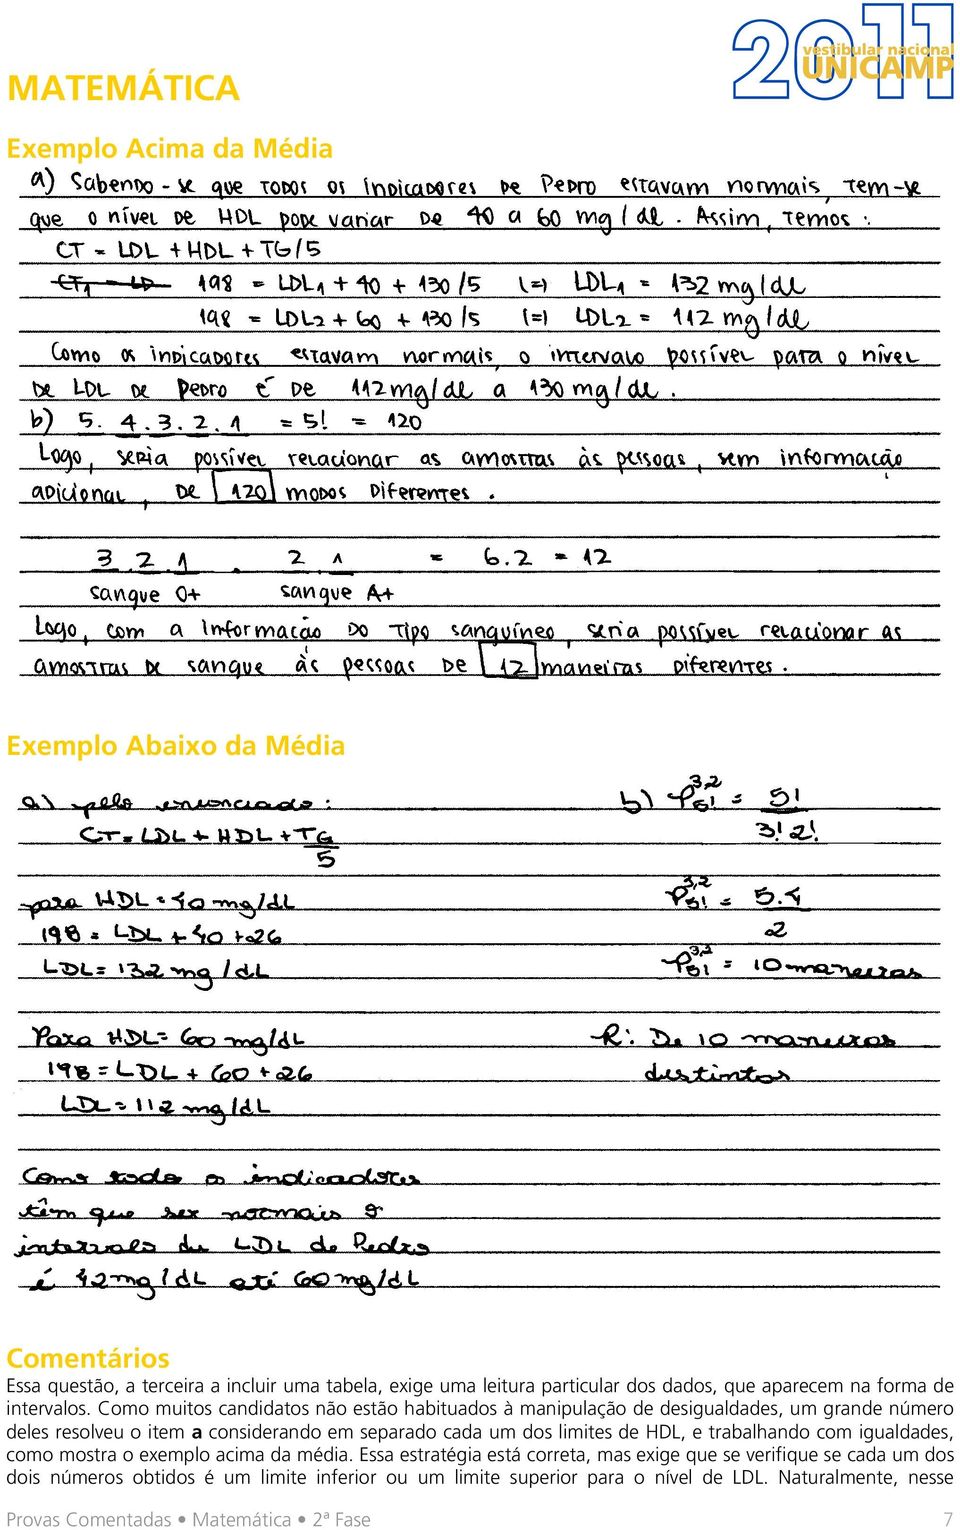 2011
vestibular nacional
UNICAMP
MATEMÁTICA
Exemplo Acima da Média
a) Sabendo-se que todos os indicadores de Pedro estavam normais, tem-se
que o nível de HDL pode variar de 40 a 60 mg/dl. Assim, temos:
CT = LDL + HDL + TG/5
198 = LDL₁ + 40 + 130/5 (=) LDL₁ = 132 mg/dl
198 = LDL₂ + 60 + 130/5 (=) LDL₂ = 112 mg/dl
Como os indicadores estavam normais, o intervalo possível para o nível
de LDL de Pedro é de 112mg/dl a 130mg/dl.
b) 5.4.3.2.1 = 5! = 120
Logo, seria possível relacionar as amostras às pessoas, sem informação
adicional, de 120 modos diferentes.
3.2.1 . 2.1 = 6.2 = 12
sangue O+ sangue A+
Logo, com a informação do tipo sanguíneo, seria possível relacionar as
amostras de sangue às pessoas de 12 maneiras diferentes.
Exemplo Abaixo da Média
a) pelo enunciado:
CT = LDL + HDL + TG
5
para HDL = 40 mg/dL
198 = LDL + 40 + 26
LDL = 132 mg/dL
Para HDL = 60 mg/dL
198 = LDL + 60 + 26
LDL = 112 mg/dL
Como todo os indicadores
têm que ser normais o
intervalo de LDL de Pedro
é 42mg/dL até 60mg/dL
b) P5!^3,2 = 5!
3!2!
P5!^3,2 = 5.4
2
P5!^3,2 = 10 maneiras
R: De 10 maneiras
distintas
Comentários
Essa questão, a terceira a incluir uma tabela, exige uma leitura particular dos dados, que aparecem na forma de
intervalos. Como muitos candidatos não estão habituados à manipulação de desigualdades, um grande número
deles resolveu o item a considerando em separado cada um dos limites de HDL, e trabalhando com igualdades,
como mostra o exemplo acima da média. Essa estratégia está correta, mas exige que se verifique se cada um dos
dois números obtidos é um limite inferior ou um limite superior para o nível de LDL. Naturalmente, nesse
Provas Comentadas • Matemática • 2ª Fase 7